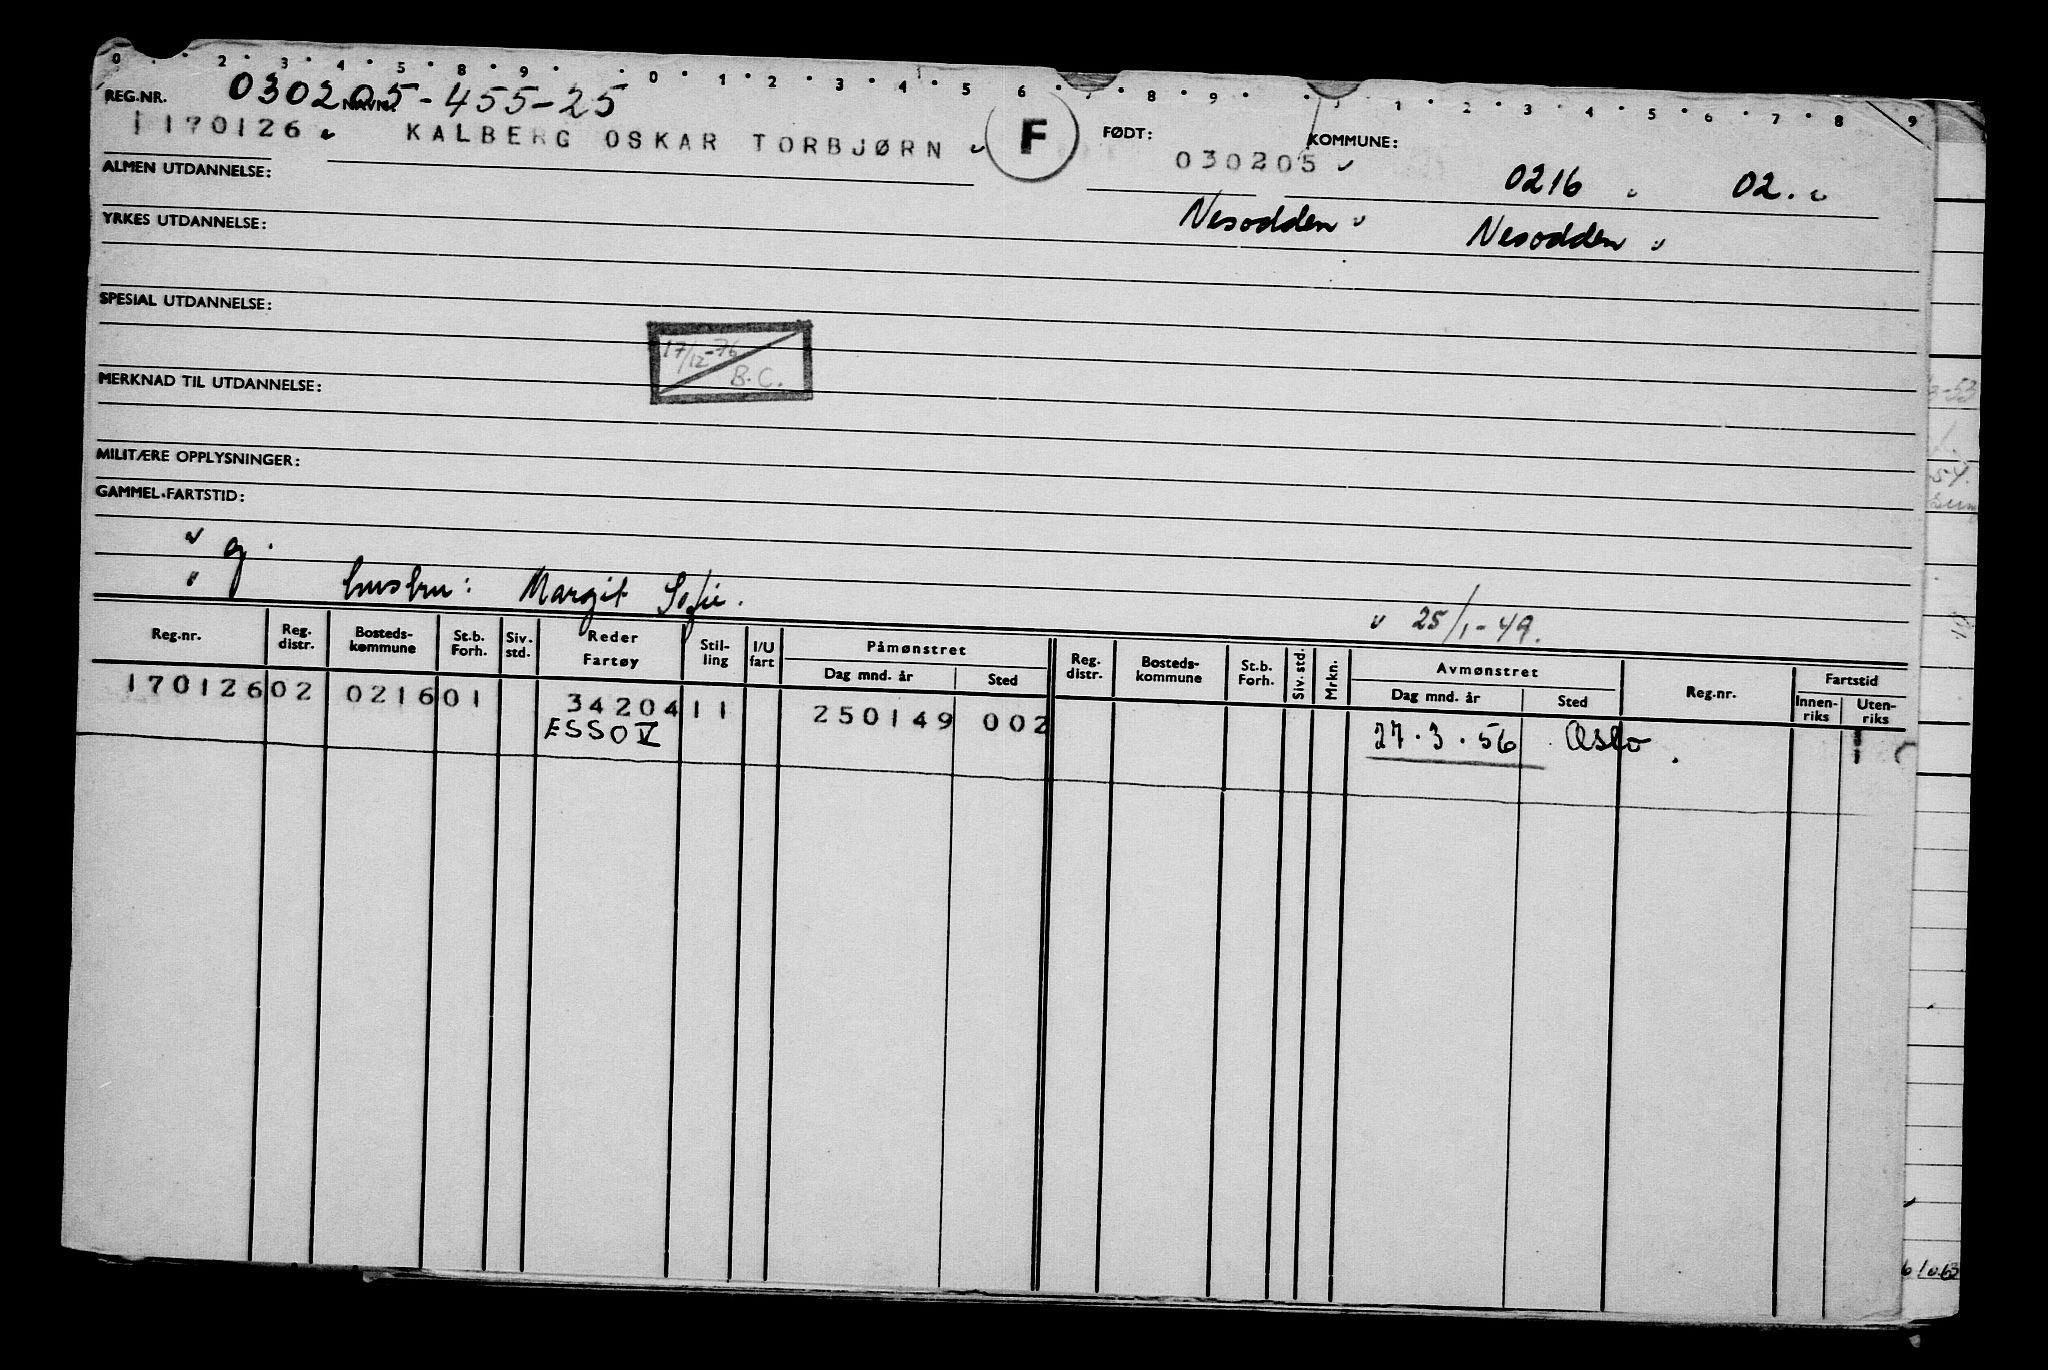 0 · · 2 · 3 · 4 · 5 · 8 · 9 · · 0 · 1 · 2 · 3 · 4 · 5 6 · 7 · 8 · 9 · · 1 · 2 · 3 · 4 · 5 · 6 · 7 · 8 · 9
REG.NR. 030205-455-25 NAVN:
1170126 KALBERG OSKAR TORBJØRN F FØDT: 030205 KOMMUNE: 0216 02.
ALMEN UTDANNELSE:
Nesodden Nesodden
YRKES UTDANNELSE:
SPESIAL UTDANNELSE:
17/12-76
B.C.
MERKNAD TIL UTDANNELSE:
MILITÆRE OPPLYSNINGER:
GAMMEL FARTSTID:
g.
hustru: Margit Sofie.
25/1-49.
Reg.nr. Reg. distr. Bosteds-kommune St.b. Forh. Siv. std. Reder Fartøy Stil-ling I/U fart Påmønstret Dag mnd. år Sted Reg. distr. Bosteds-kommune St.b. Forh. Siv. std. Mrkn. Avmønstret Dag mnd. år Sted Reg.nr. Fartstid Innen-riks Uten-riks
170126 02 0216 01 34204 11 250149 002
ESSO V 27.3.56 Oslo.